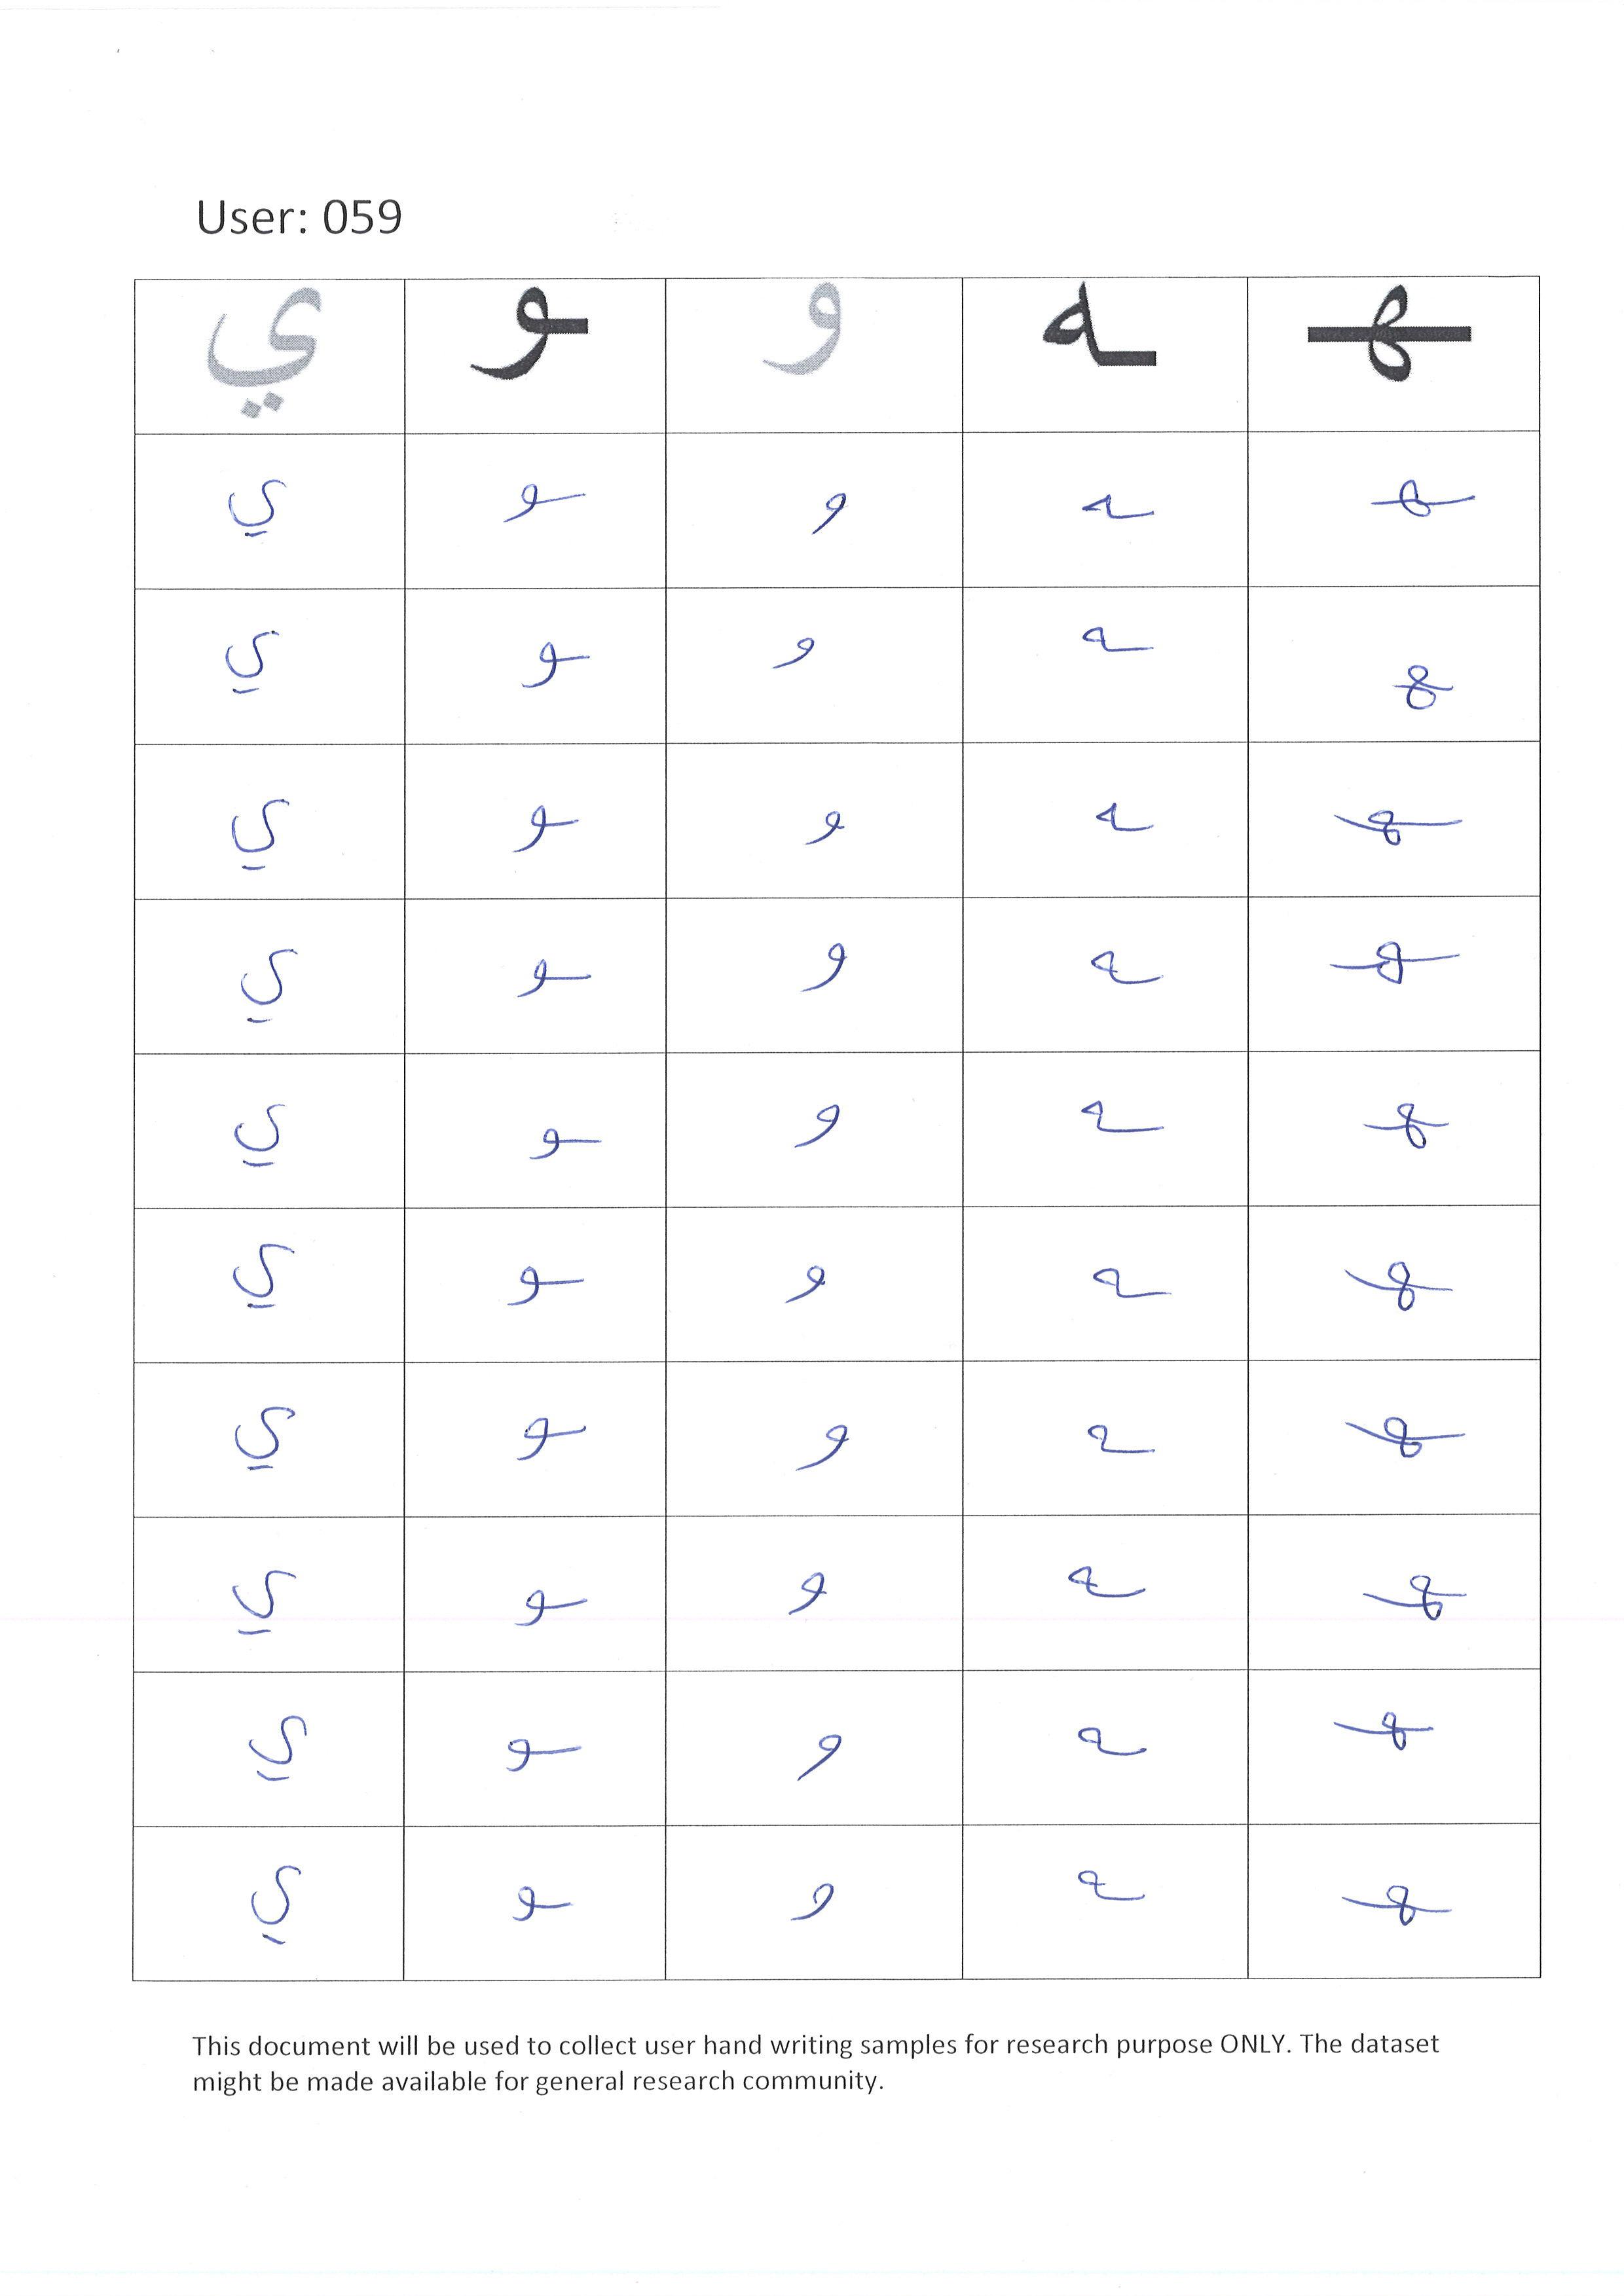 User: 059
ي ـو و ـه ـهـ
ي ـو و ـه ـهـ
ي ـو و ـه ـهـ
ي ـو و ـه ـهـ
ي ـو و ـه ـهـ
ي ـو و ـه ـهـ
ي ـو و ـه ـهـ
ي ـو و ـه ـهـ
ي ـو و ـه ـهـ
ي ـو و ـه ـهـ
ي ـو و ـه ـهـ
This document will be used to collect user hand writing samples for research purpose ONLY. The dataset
might be made available for general research community.